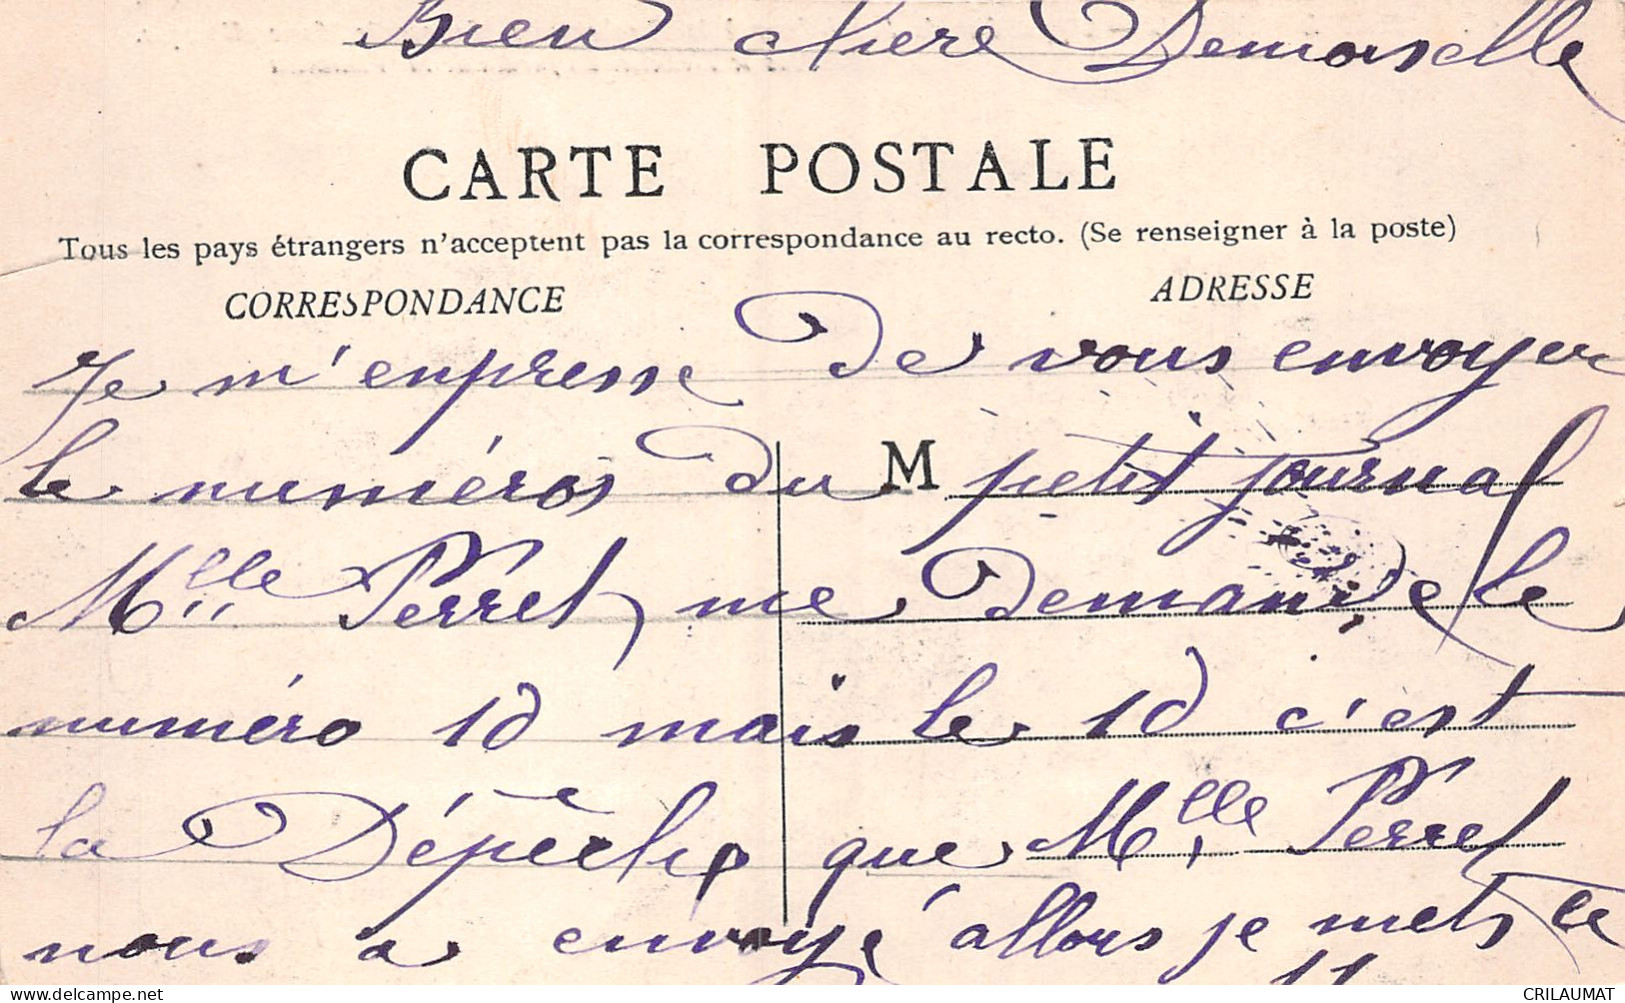 Bien chere Demoiselle
CARTE POSTALE
Tous les pays étrangers n'acceptent pas la correspondance au recto. (Se renseigner à la poste)
CORRESPONDANCE ADRESSE
Je m'enpresse de vous envoyer
le numéros du M petit journal
Mlle Perret, me demande le
numéro 10 mais le 10 c'est
la Dépêche que Mlle Perret
nous a envoyé allors je mets le
11
delcampe.net
CRILAUMAT